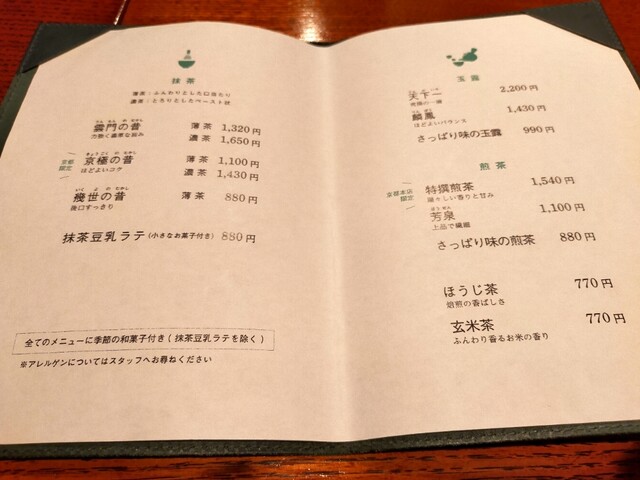 抹茶
薄茶：ふんわりとした口当たり
濃茶：とろりとしたペースト状
うんもんのむかし
雲門の昔 薄茶 1,320円
力強く濃厚な旨み 濃茶 1,650円
京都限定
きょうごくのむかし
京極の昔 薄茶 1,100円
ほどよいコク 濃茶 1,430円
いくよのむかし
幾世の昔 薄茶 880円
後口すっきり
抹茶豆乳ラテ（小さなお菓子付き）880円
全てのメニューに季節の和菓子付き（抹茶豆乳ラテを除く）
※アレルゲンについてはスタッフへお尋ねください
玉露
天下一 2,200円
究極の一滴
麟鳳 1,430円
ほどよいバランス
さっぱり味の玉露 990円
煎茶
京都本店限定
特撰煎茶 1,540円
瑞々しい香りと甘み
ほうせん
芳泉 1,100円
上品で繊細
さっぱり味の煎茶 880円
ほうじ茶 770円
焙煎の香ばしさ
玄米茶 770円
ふんわり香るお米の香り